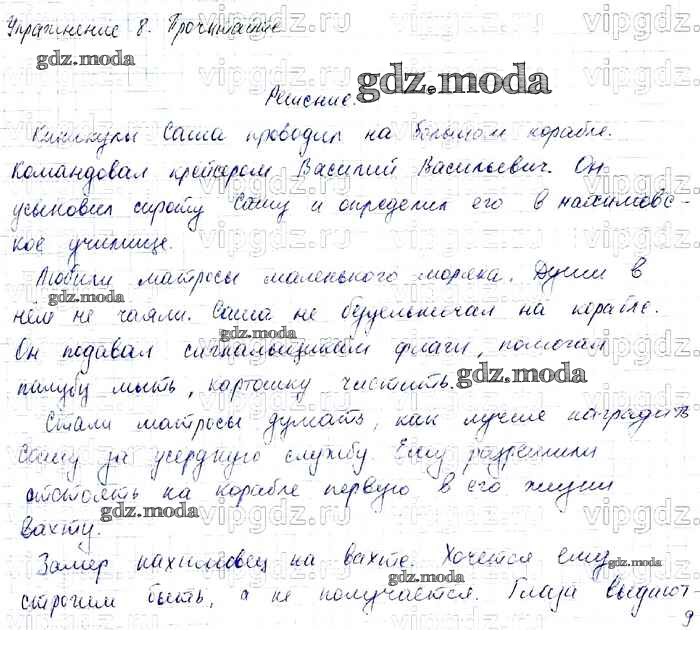 Упражнение 8. Прочитайте
Решение.
Каникулы Саша проводил на большом корабле.
Командовал крейсером Василий Васильевич. Он
усыновил сироту Сашу и определил его в нахимовс-
кое училище.
Любили матросы маленького моряка. Души в
нём не чаяли. Саша не бездельничал на корабле.
Он подавал сигнальщикам флаги, помогал
палубу мыть, картошку чистить.
Стали матросы думать, как лучше наградить
Сашу за усердную службу. Ему разрешили
отстоять на корабле первую в его жизни
вахту.
Замер нахимовец на вахте. Хочется ему
строгим быть, а не получается. Глаза выдают
9
gdz.moda
gdz.moda
gdz.moda
gdz.moda
gdz.moda
gdz.moda
gdz.moda
vipgdz.ru